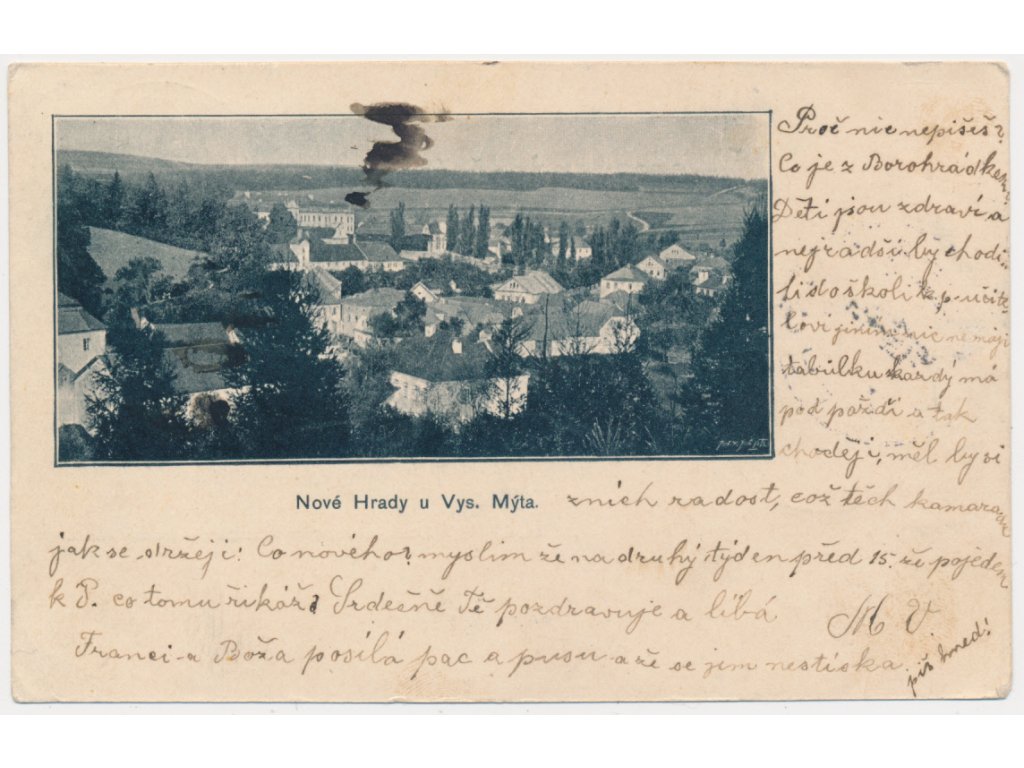 Proč nic nepišeš?
Co je z Borohrádkem?
Děti jsou zdraví a
nejradši by chodi-
li do školi k pučite
lovi jinau nic nemaji
tabulku každý má
pod paždí a tak
choději, měl by vi
Nové Hrady u Vys. Mýta.
zních radost, což těch kamaradu
jak se držeji! Co nového? myslim že na druhý týden před 15. že pojedem
k P. co tomu řikáž? Srdečně Tě pozdravuje a líbá M V
Franci a Boža posílá pac a pusu a že se jim nestiská
piš hned!